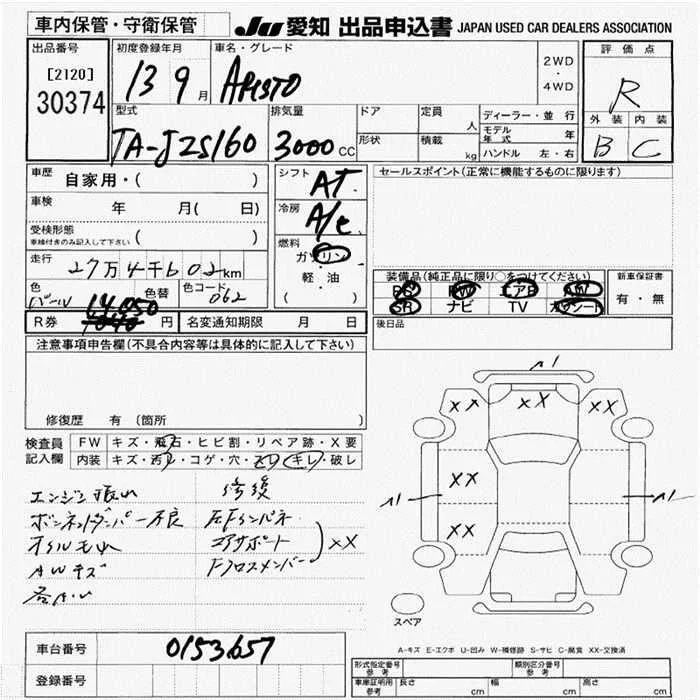 車内保管・守衛保管
JU 愛知 出品申込書 JAPAN USED CAR DEALERS ASSOCIATION
出品番号
[2120]
30374
初度登録年月
13 9月
車名・グレード
ARISTO
2WD
・
4WD
評価点
R
外装 内装
B C
型式
TA-JZS160
排気量
3000cc
ドア
定員
人
形状
積載
kg
ディーラー・並行
モデル年式 年
ハンドル 左・右
車歴 自家用・( )
車検 年 月( 日)
受検形態
車検付きのみ記入して下さい ( )
走行 27万4千602km
色 パール 色替 色コード 062
R券 14,050 円
名変通知期限 月 日
シフト AT
冷房 A/C
燃料
ガソリン
軽・油
( )
セールスポイント(正常に機能するものに限ります)
装備品(純正品に限り○をつけてください)
PS PW エアB AW
SR ナビ TV カワシート
新車保証書
有・無
後日品
注意事項申告欄(不具合内容等は具体的に記入して下さい)
修復歴 有(箇所 )
検査員記入欄
FW キズ・飛石・ヒビ割・リペア跡・X要
内装 キズ・汚れ・コゲ・穴・スレ・キレ・破レ
エンジン振れ
ボンネットダンパー不良
オイルもれ
AWキズ
修復
左Fインパネ
コアサポート
Fクロスメンバー
XX
A1
XX XX XX
XX
XX
A1
A1
スペア
A-キズ E-エクボ U-凹み W-補修跡 S-サビ C-腐食 XX-交換済
車台番号 0153657
登録番号
形式指定番号 参考
類別区分番号 参考
車庫証明用 参考 長さ cm 幅 cm 高さ cm